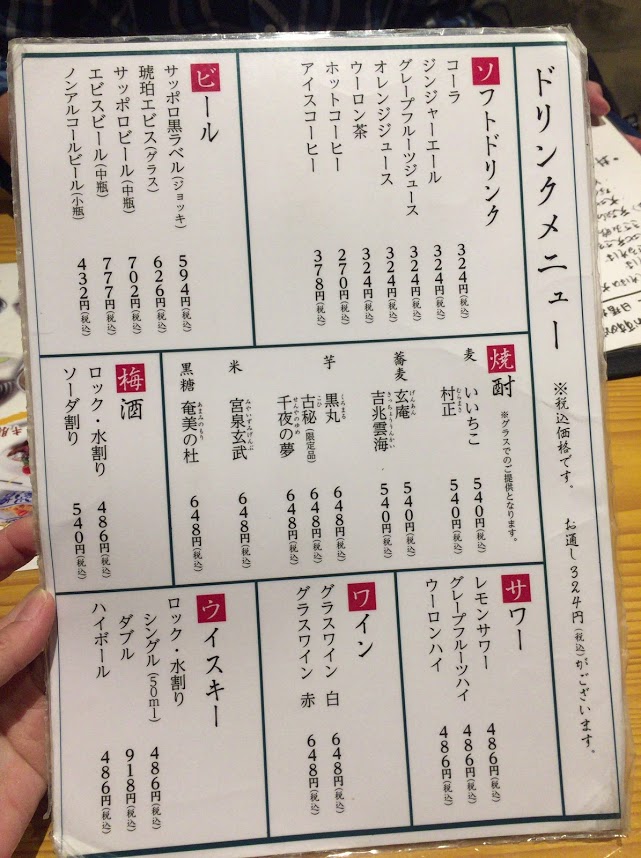 ドリンクメニュー ※税込価格です。 お通し324円(税込)がございます。
ソフトドリンク
コーラ 324円(税込)
ジンジャーエール 324円(税込)
グレープフルーツジュース 324円(税込)
オレンジジュース 324円(税込)
ウーロン茶 324円(税込)
ホットコーヒー 270円(税込)
アイスコーヒー 378円(税込)
ビール
サッポロ黒ラベル(ジョッキ) 594円(税込)
琥珀ヱビス(グラス) 626円(税込)
サッポロビール(中瓶) 702円(税込)
エビスビール(中瓶) 777円(税込)
ノンアルコールビール(小瓶) 432円(税込)
焼酎 ※グラスでのご提供となります。
麦 いいちこ 540円(税込)
村正 むらまさ 540円(税込)
蕎麦 玄庵 げんあん 540円(税込)
吉兆雲海 きっちょううんかい 540円(税込)
芋 黒丸 くろまる 648円(税込)
古秘(限定品) こひ 648円(税込)
千夜の夢 せんやのゆめ 648円(税込)
米 宮泉玄武 みやいずみげんぶ 648円(税込)
黒糖 奄美の杜 あまみのもり 648円(税込)
梅酒
ロック・水割り 486円(税込)
ソーダ割り 540円(税込)
サワー
レモンサワー 486円(税込)
グレープフルーツハイ 486円(税込)
ウーロンハイ 486円(税込)
ワイン
グラスワイン 白 648円(税込)
グラスワイン 赤 648円(税込)
ウイスキー
ロック・水割り
シングル(50ml) 486円(税込)
ダブル 918円(税込)
ハイボール 486円(税込)